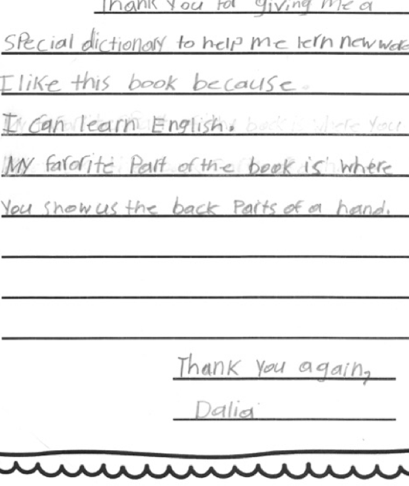 Thank you for giving me a
special dictionary to help me lern new words
I like this book because.
I can learn English.
My farorite Part of the book is where
You show us the back Parts of a hand.
Thank you again,
Dalia